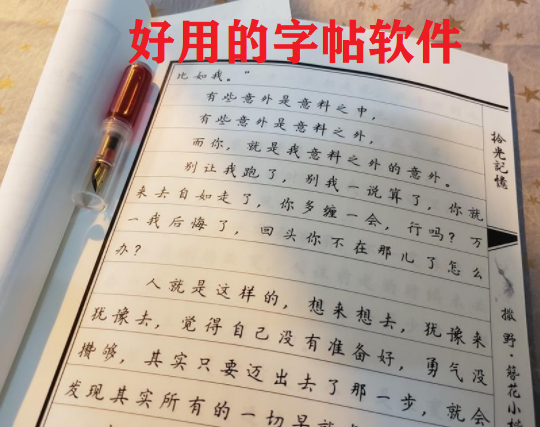 好用的字帖软件
比如我。"
有些意外是意料之中，
有些意外是意料之外，
而你，就是我意料之外的意外。
别让我跑了，别我一说算了，你就
来去自如走了，你多缠一会，行吗？万
一我后悔了，回头你不在那儿了怎么
办？
人就是这样的，想来想去，犹豫来
犹豫去，觉得自己没有准备好，勇气没
攒够，其实只要迈出去了那一步，就会
发现其实所有的一切早就
拾光記憶
撒野·簪花小楷